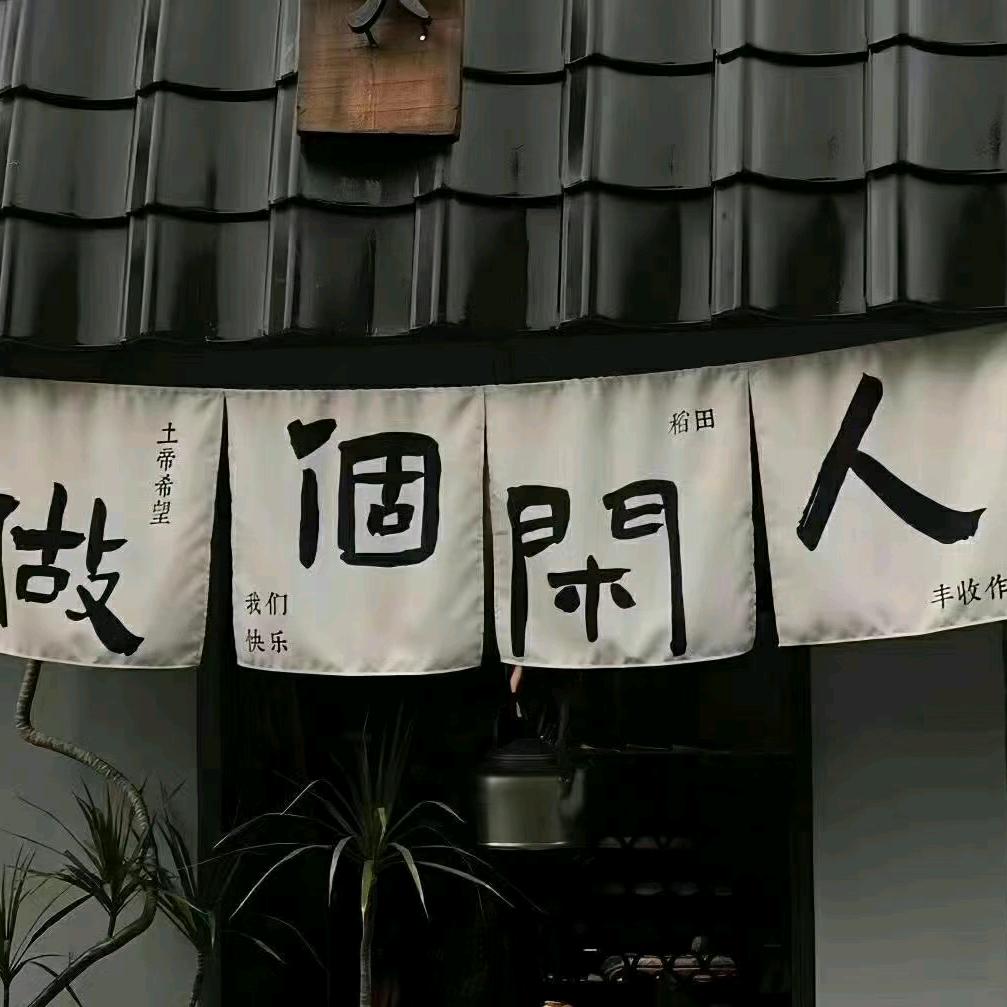 做個閑人
土帝希望
我们
快乐
稻田
丰收作